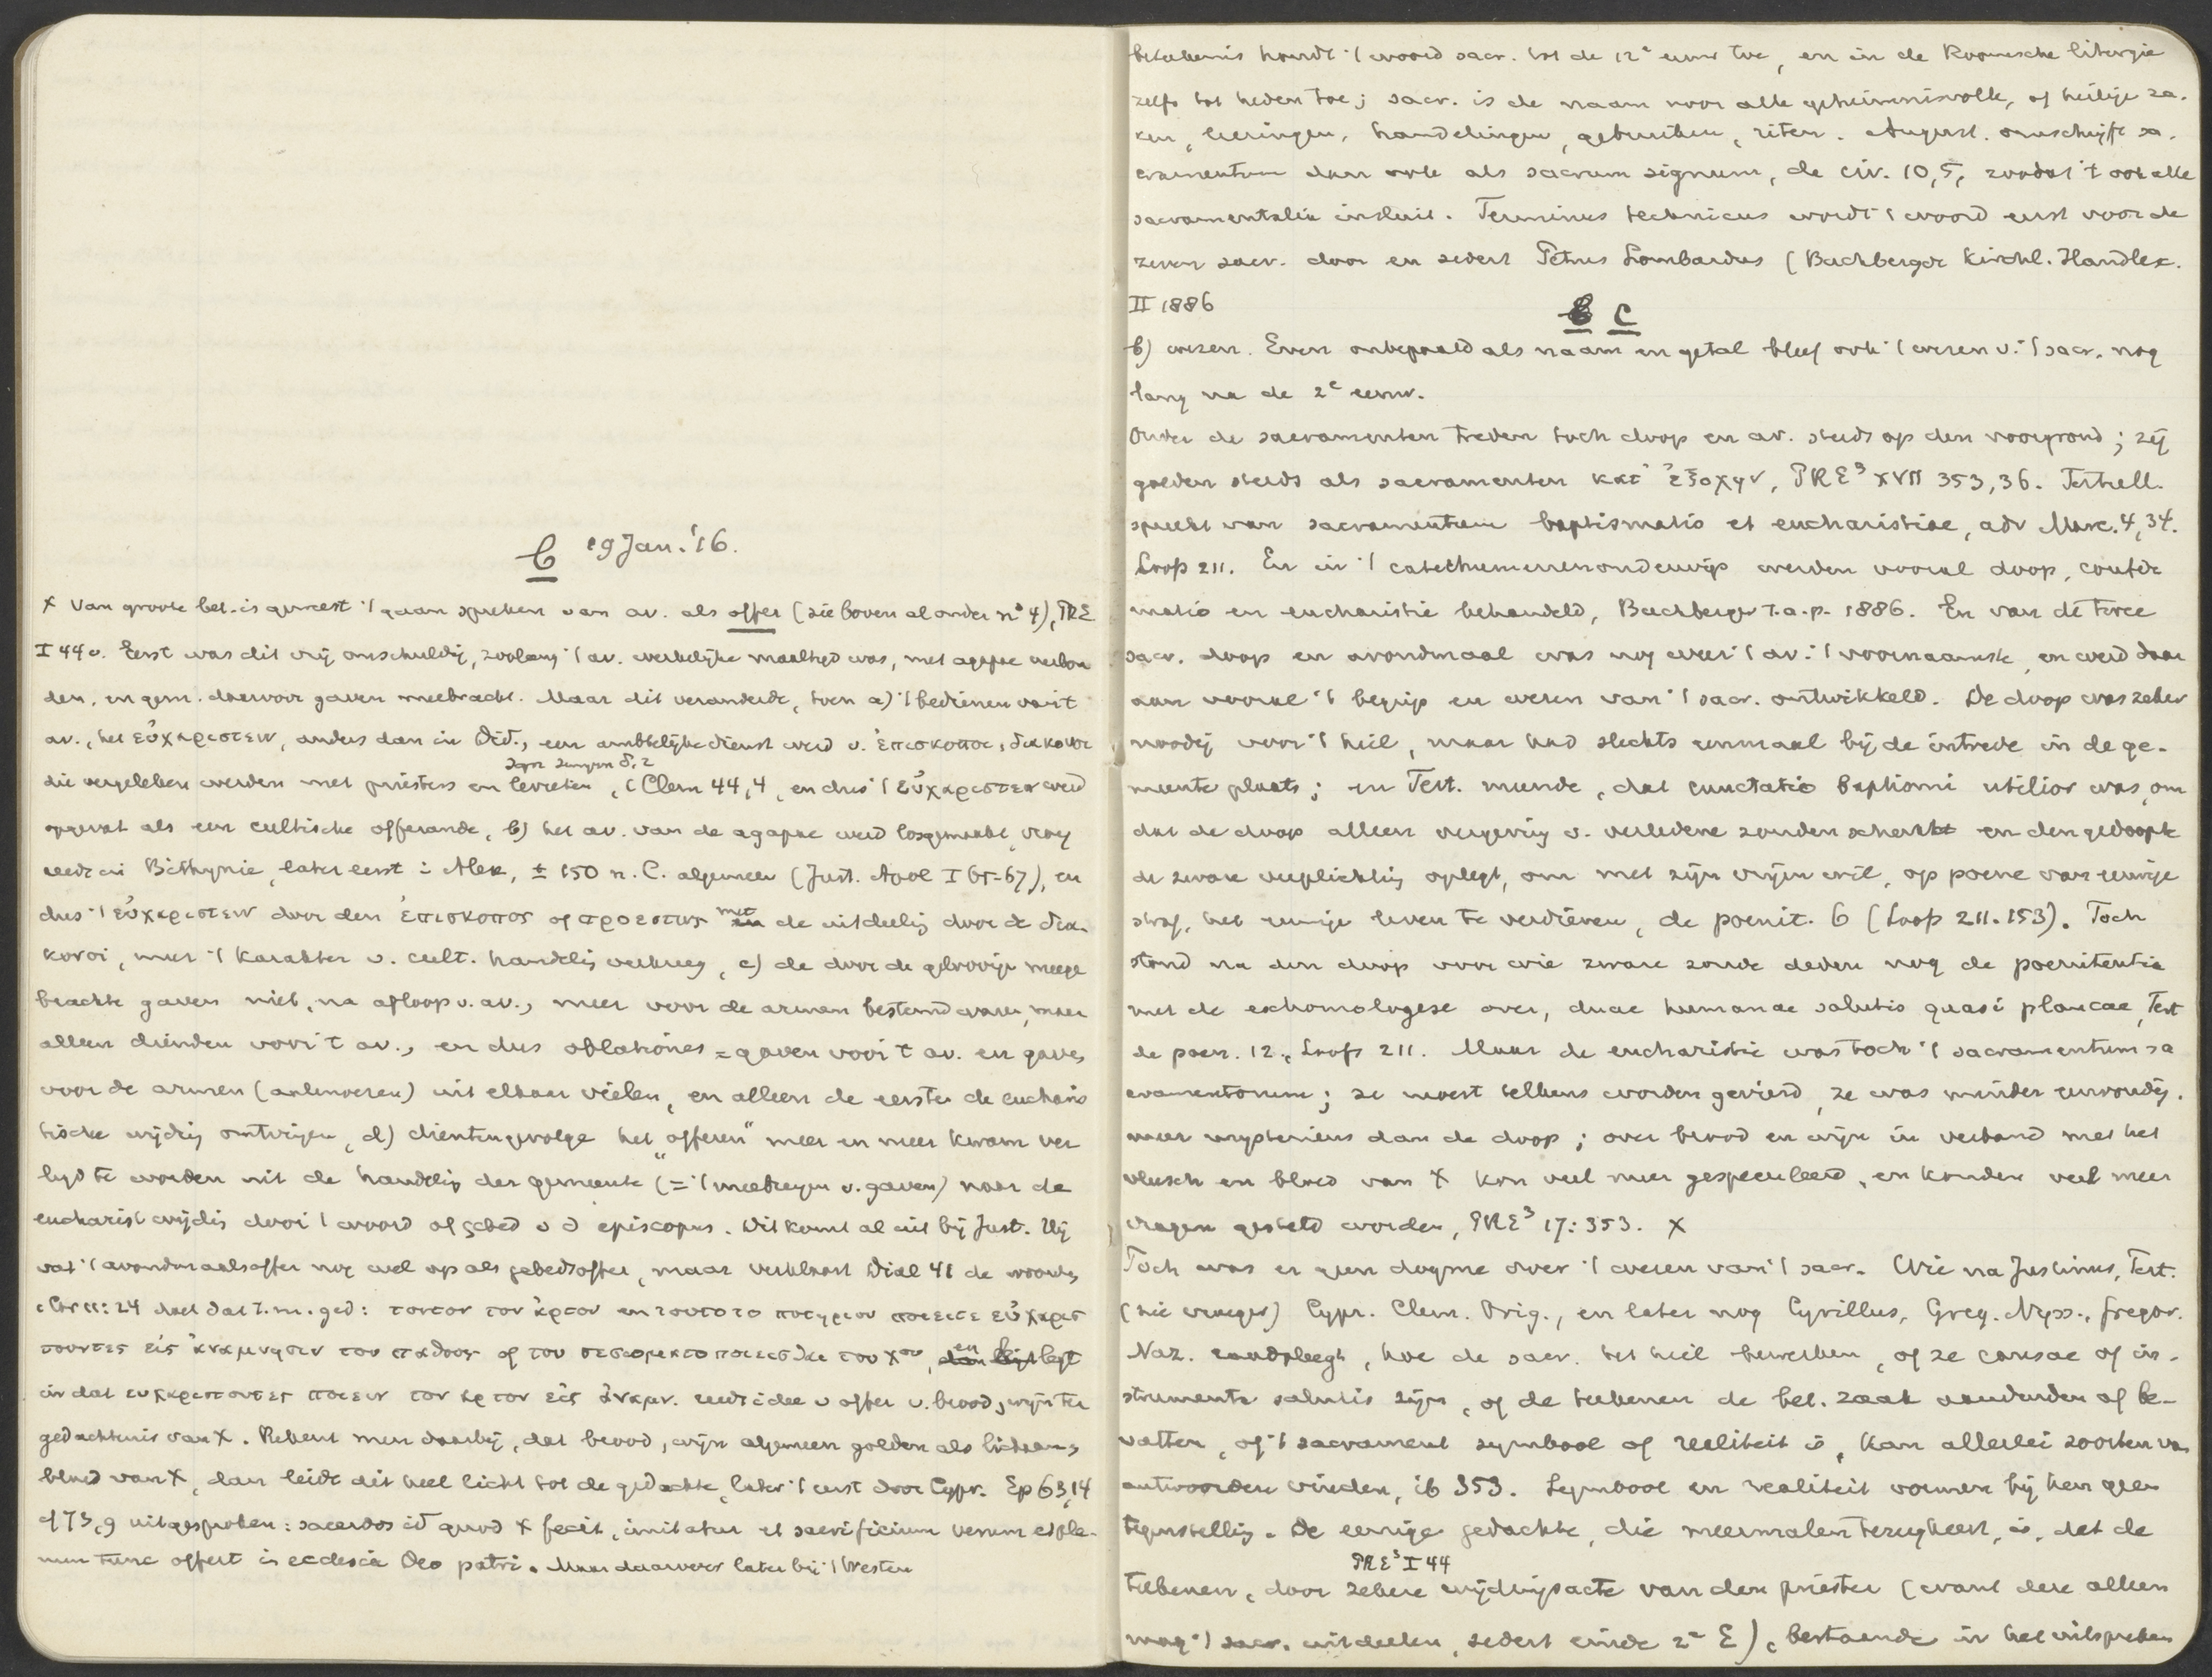 C 19 Jan. '16.
x Van groote bet. is geweest 't gaan spreken van av. als offer (zie boven al onder n° 4), PRE
I 44 v. Eerst was dit vrij onschuldig, zoolang 't av. werkelijke maaltijd was, met agapae verbon
den, en gem. daarvoor gaven meebracht. Maar dit veranderde, toen a) 't bedienen van 't
av., het εὐχαριστειν, anders dan in Did., een ambtelijke dienst werd v. ἐπισκοποι, διακονοι
die vergeleken werden met priesters en levieten, 1 Clem 44,4, en dus 't εὐχαριστειν werd
opgevat als een cultische offerande, b) het av. van de agapae werd losgemaakt, vroeg
reeds in Bithynie, later eerst in Alex, ± 150 n. C. algemeen (Just. Apol I 65-67), en
dus 't εὐχαριστειν door den ἐπισκοπος of προεστως met de uitdeeling door de δια-
κονοι, meer 't karakter v. cult. handeling verkreeg, c) de door de geloovige meege
brachte gaven niet, na afloop v. av., meer voor de armen bestemd waren, maar
alleen dienden voor 't av., en dus oblationes = gaven voor 't av. en gaven
voor de armen (aalmoezen) uit elkaar vielen, en alleen de eerste de eucharis
tische wijding ontvingen, d) dientengevolge het „offeren" meer en meer kwam ver
legd te worden uit de handeling der gemeente (= 't meebrengen v. gaven) naar de
eucharist wijding door 't woord of gebed v d episcopus. Dit komt al uit bij Just. Hij
vat 't avondmaalsoffer nog wel op als gebedsoffer, maar verklaart Dial 41 de woorden
1 Cor 11:24 doet dat t. m. ged: τουτον τον ἀρτον en τουτο το ποτηριον ποιειτε εὐχαρισ
τουντες εἰς ἀναμνησιν του παθους of του σεσωματοποιεισθαι του Χου, en legt
in dat ευχαριστουντες ποιειν τον αρτον εἰς ἀναμν. reeds idee v offer v. brood, wijn ter
gedachtenis van X. Rekent men daarbij, dat brood, wijn algemeen golden als lichaam,
bloed van X, dan leidt dit heel licht tot de gedachte, later 't eerst door Cypr. Ep 63,14
uitgesproken: sacerdos id quod X fecit, imitatur et sacrificium verum et ple-
num tunc offert in ecclesia Deo patri. Maar daarover later bij 't Westen
beteekenis houdt 't woord sacr. tot de 12e eeuw toe, en in de Roomsche liturgie
zelfs tot heden toe; sacr. is de naam voor alle geheimnisvolle, of heilige za-
ken, leeringen, handelingen, gebruiken, riten. August. omschrijft sa-
cramentum dan ook als sacrum signum, de civ. 10,5, zoodat 't ook alle
sacramentalia insluit. Terminus technicus wordt 't woord eerst voor de
zeven sacr. door en sedert Petrus Lombardus (Buchberger Kirchl. Handlex.
II 1886
C
b) wezen. Even onbepaald als naam en getal bleef ook 't wezen v. 't sacr. nog
lang na de 2e eeuw.
Onder de sacramenten treden toch doop en av. steeds op den voorgrond; zij
golden steeds als sacramenten κατ' ἐξοχην, PRE3 XVII 353,36. Tertull.
spreekt van sacramentum baptismatis et eucharistiae, adv Marc. 4,34.
Loofs 211. En in 't catechumenenonderwijs werden vooral doop, confir
matio en eucharistie behandeld, Buchberger t. a. p. 1886. En van de twee
sacr. doop en avondmaal was nog weer 't av. 't voornaamste, en werd daar
aan vooral 't begrip en wezen van 't sacr. ontwikkeld. De doop was zeker
noodig voor 't heil, maar had slechts eenmaal bij de intrede in de ge-
meente plaats; en Tert. meende, dat cunctatio baptismi utilior was, om
dat de doop alleen vergeving v. verledene zonden schenkt en den gedoopte
de zware verplichting oplegt, om met zijn vrijen wil, op poene van eeuwige
straf, het eeuwige leven te verdienen, de poenit. 6 (Loofs 211. 153). Toch
stond na den doop voor wie zware zonde deden nog de poenitentia
met de exhomologese over, duae humanae salutis quasi plancae, Tert
de poen. 12, Loofs 211. Maar de eucharistie was toch 't sacramentum sa
cramentorum; ze moest telkens worden gevierd, ze was minder eenvoudig,
meer mysterieus dan de doop; over brood en wijn in verband met het
vleesch en bloed van X kon veel meer gespeculeerd, en konden veel meer
vragen gesteld worden, PRE3 17:353. X
Toch was er geen dogme over 't wezen van 't sacr. Wie na Justinus, Tert.
(zie vroeger) Cypr. Clem. Orig., en later nog Cyrillus, Greg. Nyss., Gregor.
Naz. raadpleegt, hoe de sacr. het heil bewerken, of ze causae of in-
strumenta salutis zijn, of de teekenen de bet. zaak aanduiden of be-
vatten, of 't sacrament symbool of realiteit is, kan allerlei soorten van
antwoorden vinden, ib 353. Symbool en realiteit vormen bij hen geen
tegenstelling. De eenige gedachte, die meermalen terugkeert, is, dat de
PRE3 I 44
teekenen, door zekere wijdingsacte van den priester (want deze alleen
mag 't sacr. uitdeelen, sedert einde 2e E), bestaande in het uitspreken